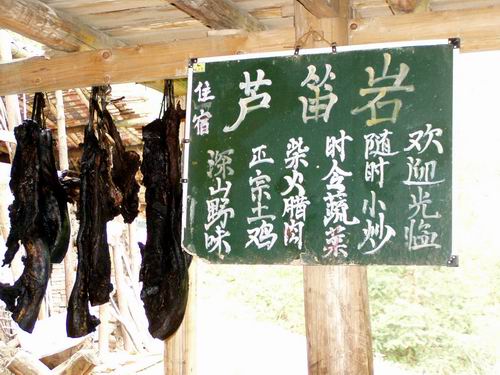 芦笛岩
住宿
深山野味
正宗土鸡
柴火腊肉
时令蔬菜
随时小炒
欢迎光临